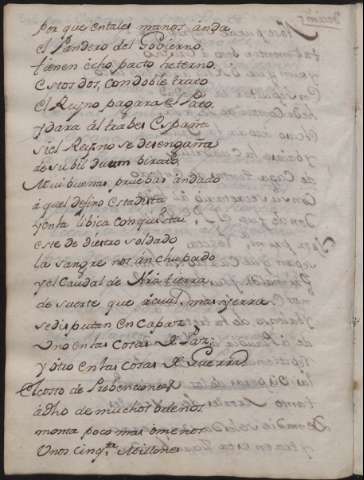 por que en tales manos anda
el Pandero del Gobierno,
tienen echo pacto heterno
estos dos, con doble trato
el Reyno pagara el Pato,
y dara al trabes España
si el Reyno se desengaña
de su bil
Mui buenas, pruebas an dado
aquel fino estadista
y en la libica conquista
este diestro soldado
la sangre nos án chupado
y el Caudal de Nra tierra
de suerte que a qual mas yerra
se disputan en Capaz
Uno en las cosas de Paz
y otro en las cosas de Guerra
El costo de Probenciones
a dho de muchos buenos
monta poco mas o menos
Unos cinqta Millones